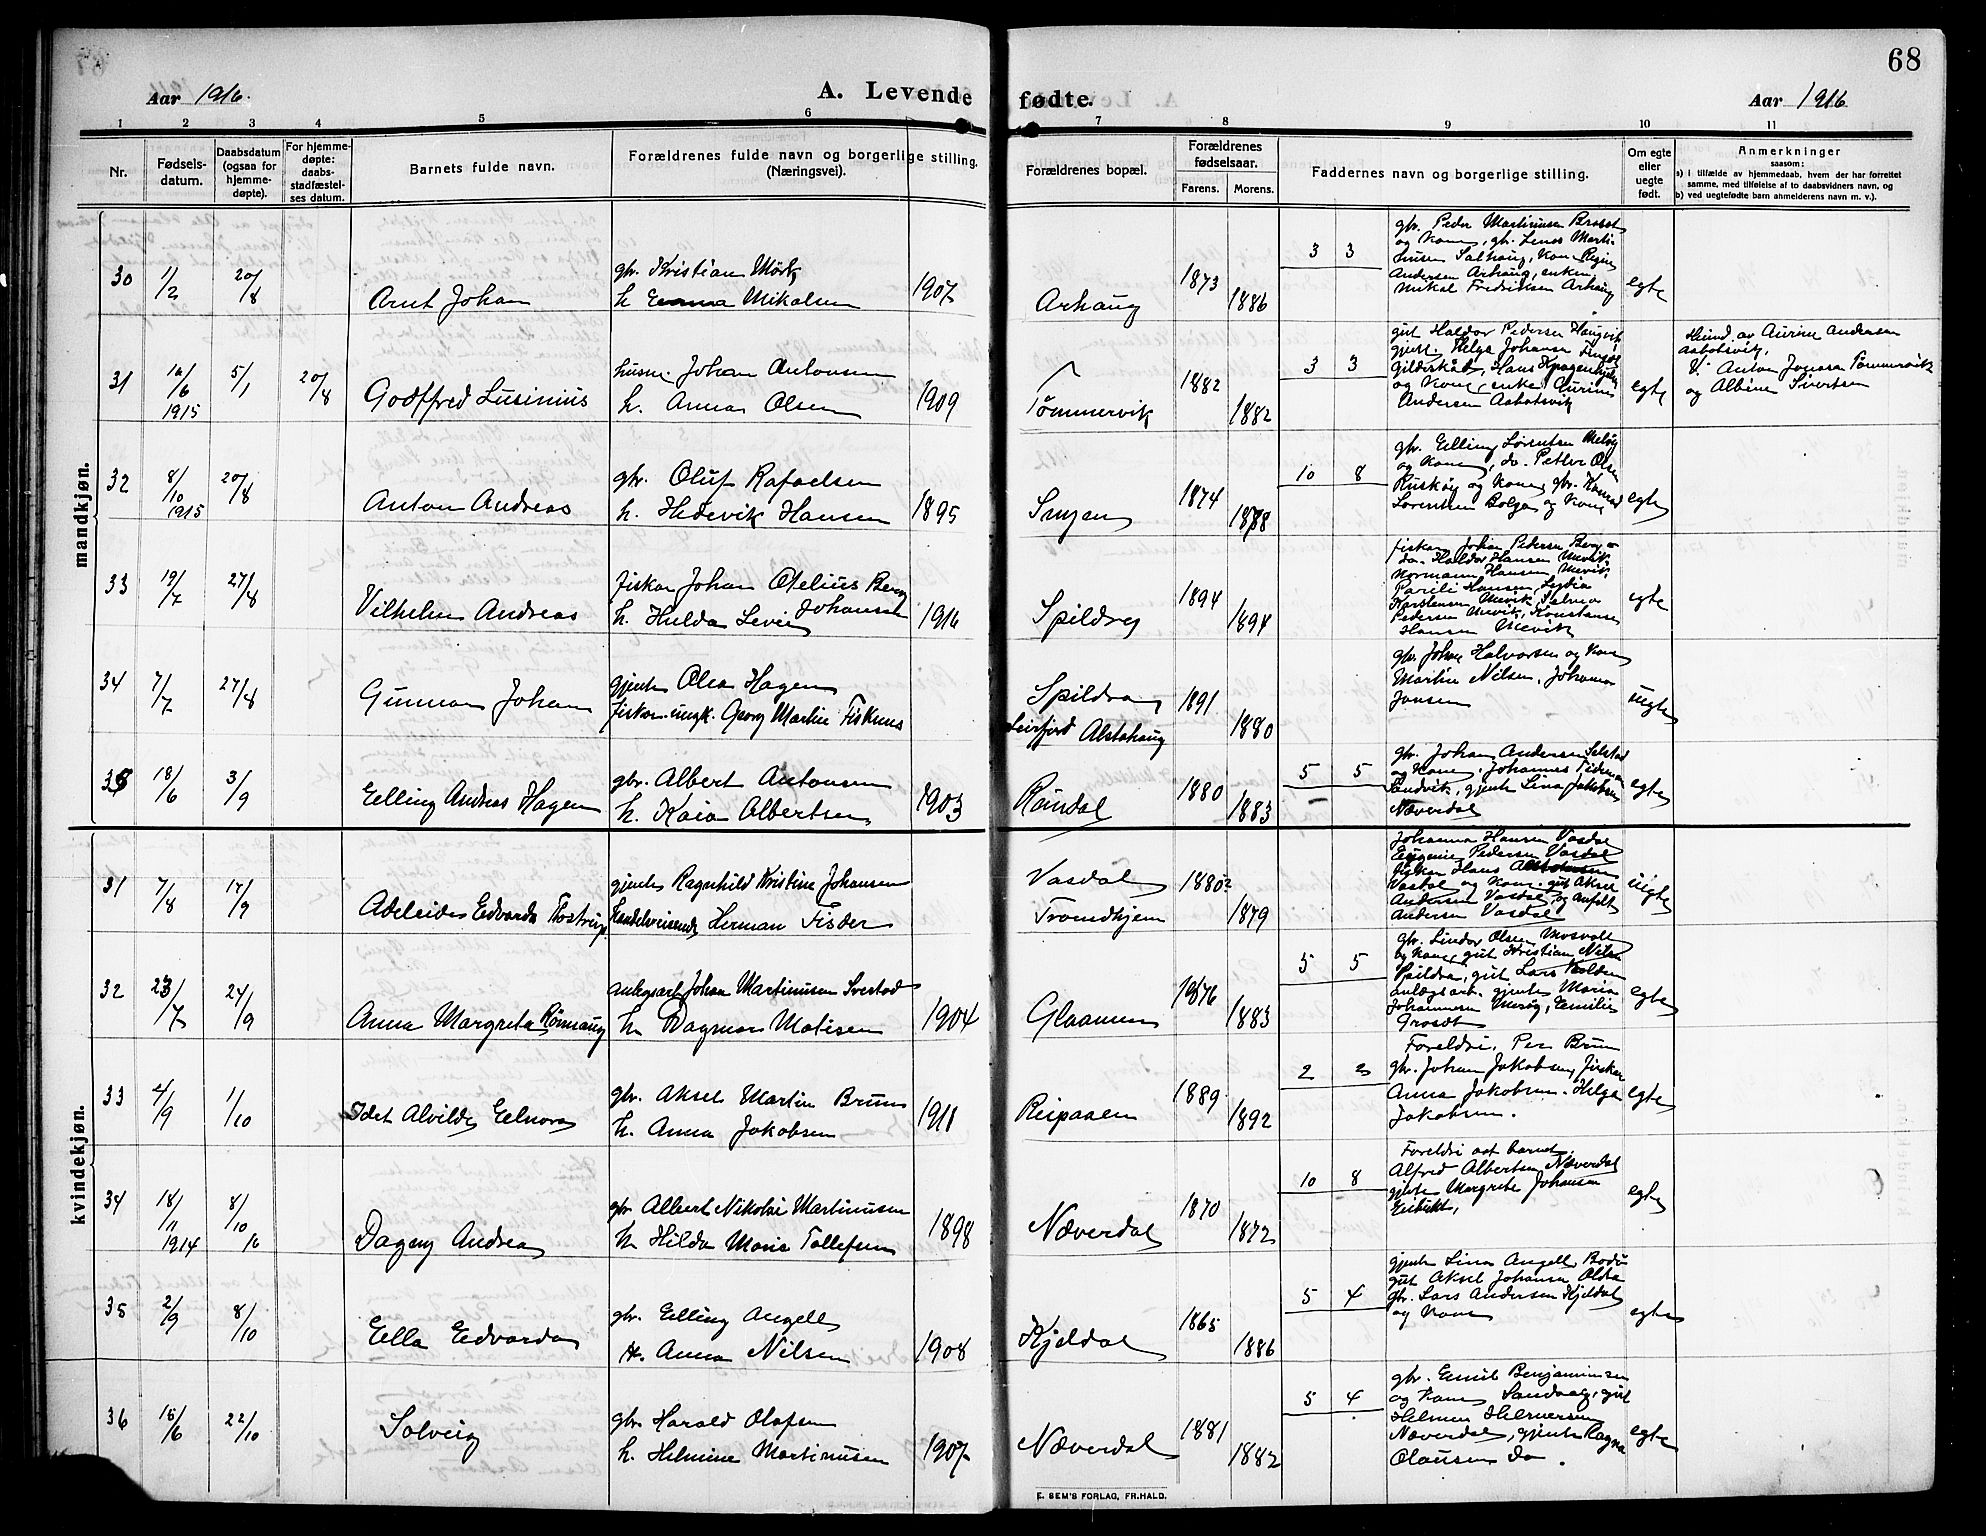 68
Aar 1916. A. Levende fødte. Aar 1916
1 2 3 4 5 6 7 8 9 10 11
Nr.
Fødsels-
datum.
Daabsdatum
(ogsaa for
hjemme-
døpte).
For hjemme-
døpte:
daabs-
stadfæstel-
ses datum.
Barnets fulde navn.
Forældrenes fulde navn og borgerlige stilling.
(Næringsvei).
Forældrenes bopæl.
Forældrenes
fødselsaar.
Farens. Morens.
Faddernes navn og borgerlige stilling.
Om egte
eller
uegte
født.
Anmerkninger
saasom:
a) i tilfælde av hjemmedaab, hvem der har førrettet
samme, med tilføielse af to daabsvidners navn, og
b) ved uegtefødte barn anmelderens navn m. v.).
mandkjøn.
30 1/2 20/8 Arnt Johan
gbr. Kristian Mörk
h. Emma Mikalsen 1907
Arhaug 1873 1886
3 3
gbr. Peder Martinusen
og Kone, gb. Martin
Andersen Arhaug, enkem
Mikal Fredriksen Arhaug
egte
31 16/6 1915 5/1 20/8 Godtfred Lusinius
husm. Johan Antonsen
h. Anna Olsen 1909
Tømmervik 1882 1882
3 3
gut Haldor Pedersen Haugvik
gjente Helga Johansen
Gildeskål, Hans
og Kone, enke Aurine
Andersen Aabotsvik
egte
Hjemd. av Aurine Andersen
Aabotsvik.
V: Anton Jonsen Tømmervik
og Albine Sivertsen
32 8/10 1915 20/8 Anton Andreas
gbr. Oluf Rafaelsen
h. Hedevik Hansen 1895
1874 1878
10 8
gbr. Elling Lorentsen Meløy
og Kone, do. Petter Olsen
og Kone, gbr. Konrad
Lorentsen Bolga og Kone
egte
33 19/7 27/8 Vilhelm Andreas
fisker Johan Otelius Berg
h. Hulda Johansen 1916
Spildreg 1894 1894
fisker Johan Pedersen Berg
do. Haldor Hansen Mevik
Normann Hansen Mevik,
Hansen, Lydia
Karstensen Mevik,
Pedersen Mevik, Konstanse
Hansen Mevik
egte
34 7/7 27/8 Gunnar Johan
gjente Olea Hagen
fisker ungk. Georg Martin Fisknes
Spildra
Leirfjord Alstahaug 1891 1880
gbr. Johan Halvorsen og Kone
Martin Nilsen, Johanna
Jensen
uegte
35 18/6 3/9 Elling Andreas Hagen
gbr. Albert Antonsen
h. Kaia Albertsen 1903
Reindal 1880 1883
5 5
gbr. Johan Andersen Selstad
og Kone, Johannes
Sandvik, gjente Lina Jakobsen
Næverdal
egte
kvindekjøn.
31 7/8 17/9 Adeleide Edvarda Thostrup
gjente Ragnhild Kristine Johansen
Handelsreisende Herman Fisder
Vasdal
Trondhjem 1880 1879
Johanna Hansen Vasdal
Eugenie Pedersen Vasdal
fisker Hans
Vasdal og Kone, gut Aksel
Andersen Vasdal, og
Andersen Vasdal
uegte
32 23/7 24/9 Anna Margreta Rønnaug
anlegsarb. Johan Martinusen Svestad
h. Dagmar Matisen 1904
Glaamen 1876 1883
5 5
gbr. Lindor Olsen Mosvold
og Kone, gut Kristian Nilsen
Spildra, gut Lars
anlægsarb. gjente Maria
Johannesen Mesøy, Emilie
egte
33 4/9 1/10 Odet Alvilde Elnora
gbr. Aksel Martin Bruun
h. Anna Jakobsen 1911
Reipaaen 1889 1892
2 2
Foreldri, Per Bruun
gbr. Johan Jakobsen, fisker
Anna Jakobsen, Helga
Jakobsen.
egte
34 18/11 1914 8/10 16 Dagny Andrea
gbr. Albert Nikolai Martinusen
h. Hilda Marie Tollefsen 1898
Næverdal 1870 1872
10 8
Foreldri aat barnet,
Alfred Albertsen Næverdal
gjente Margrete Johansen
egte
35 2/9 8/10 Ella Edvarda
gbr. Elling Angell
h. Anna Nilsen 1908
Kjeldal 1865 1886
5 4
gjente Lina Angell, Bodø
gut Aksel Johansen
gbr. Lars Andersen Kjeldal
og Kone
egte
36 15/6 22/10 Solveig
gbr. Harald Olafsen
h. Helmine Martinusen 1907
Næverdal 1881 1882
5 4
gbr. Emil Benjaminsen
og Kone Sandvaag, gut
Helmer Helmersen
Næverdal, gjente Ragna
Olausen do.
egte
E. SEM'S FORLAG, FR.HALD.